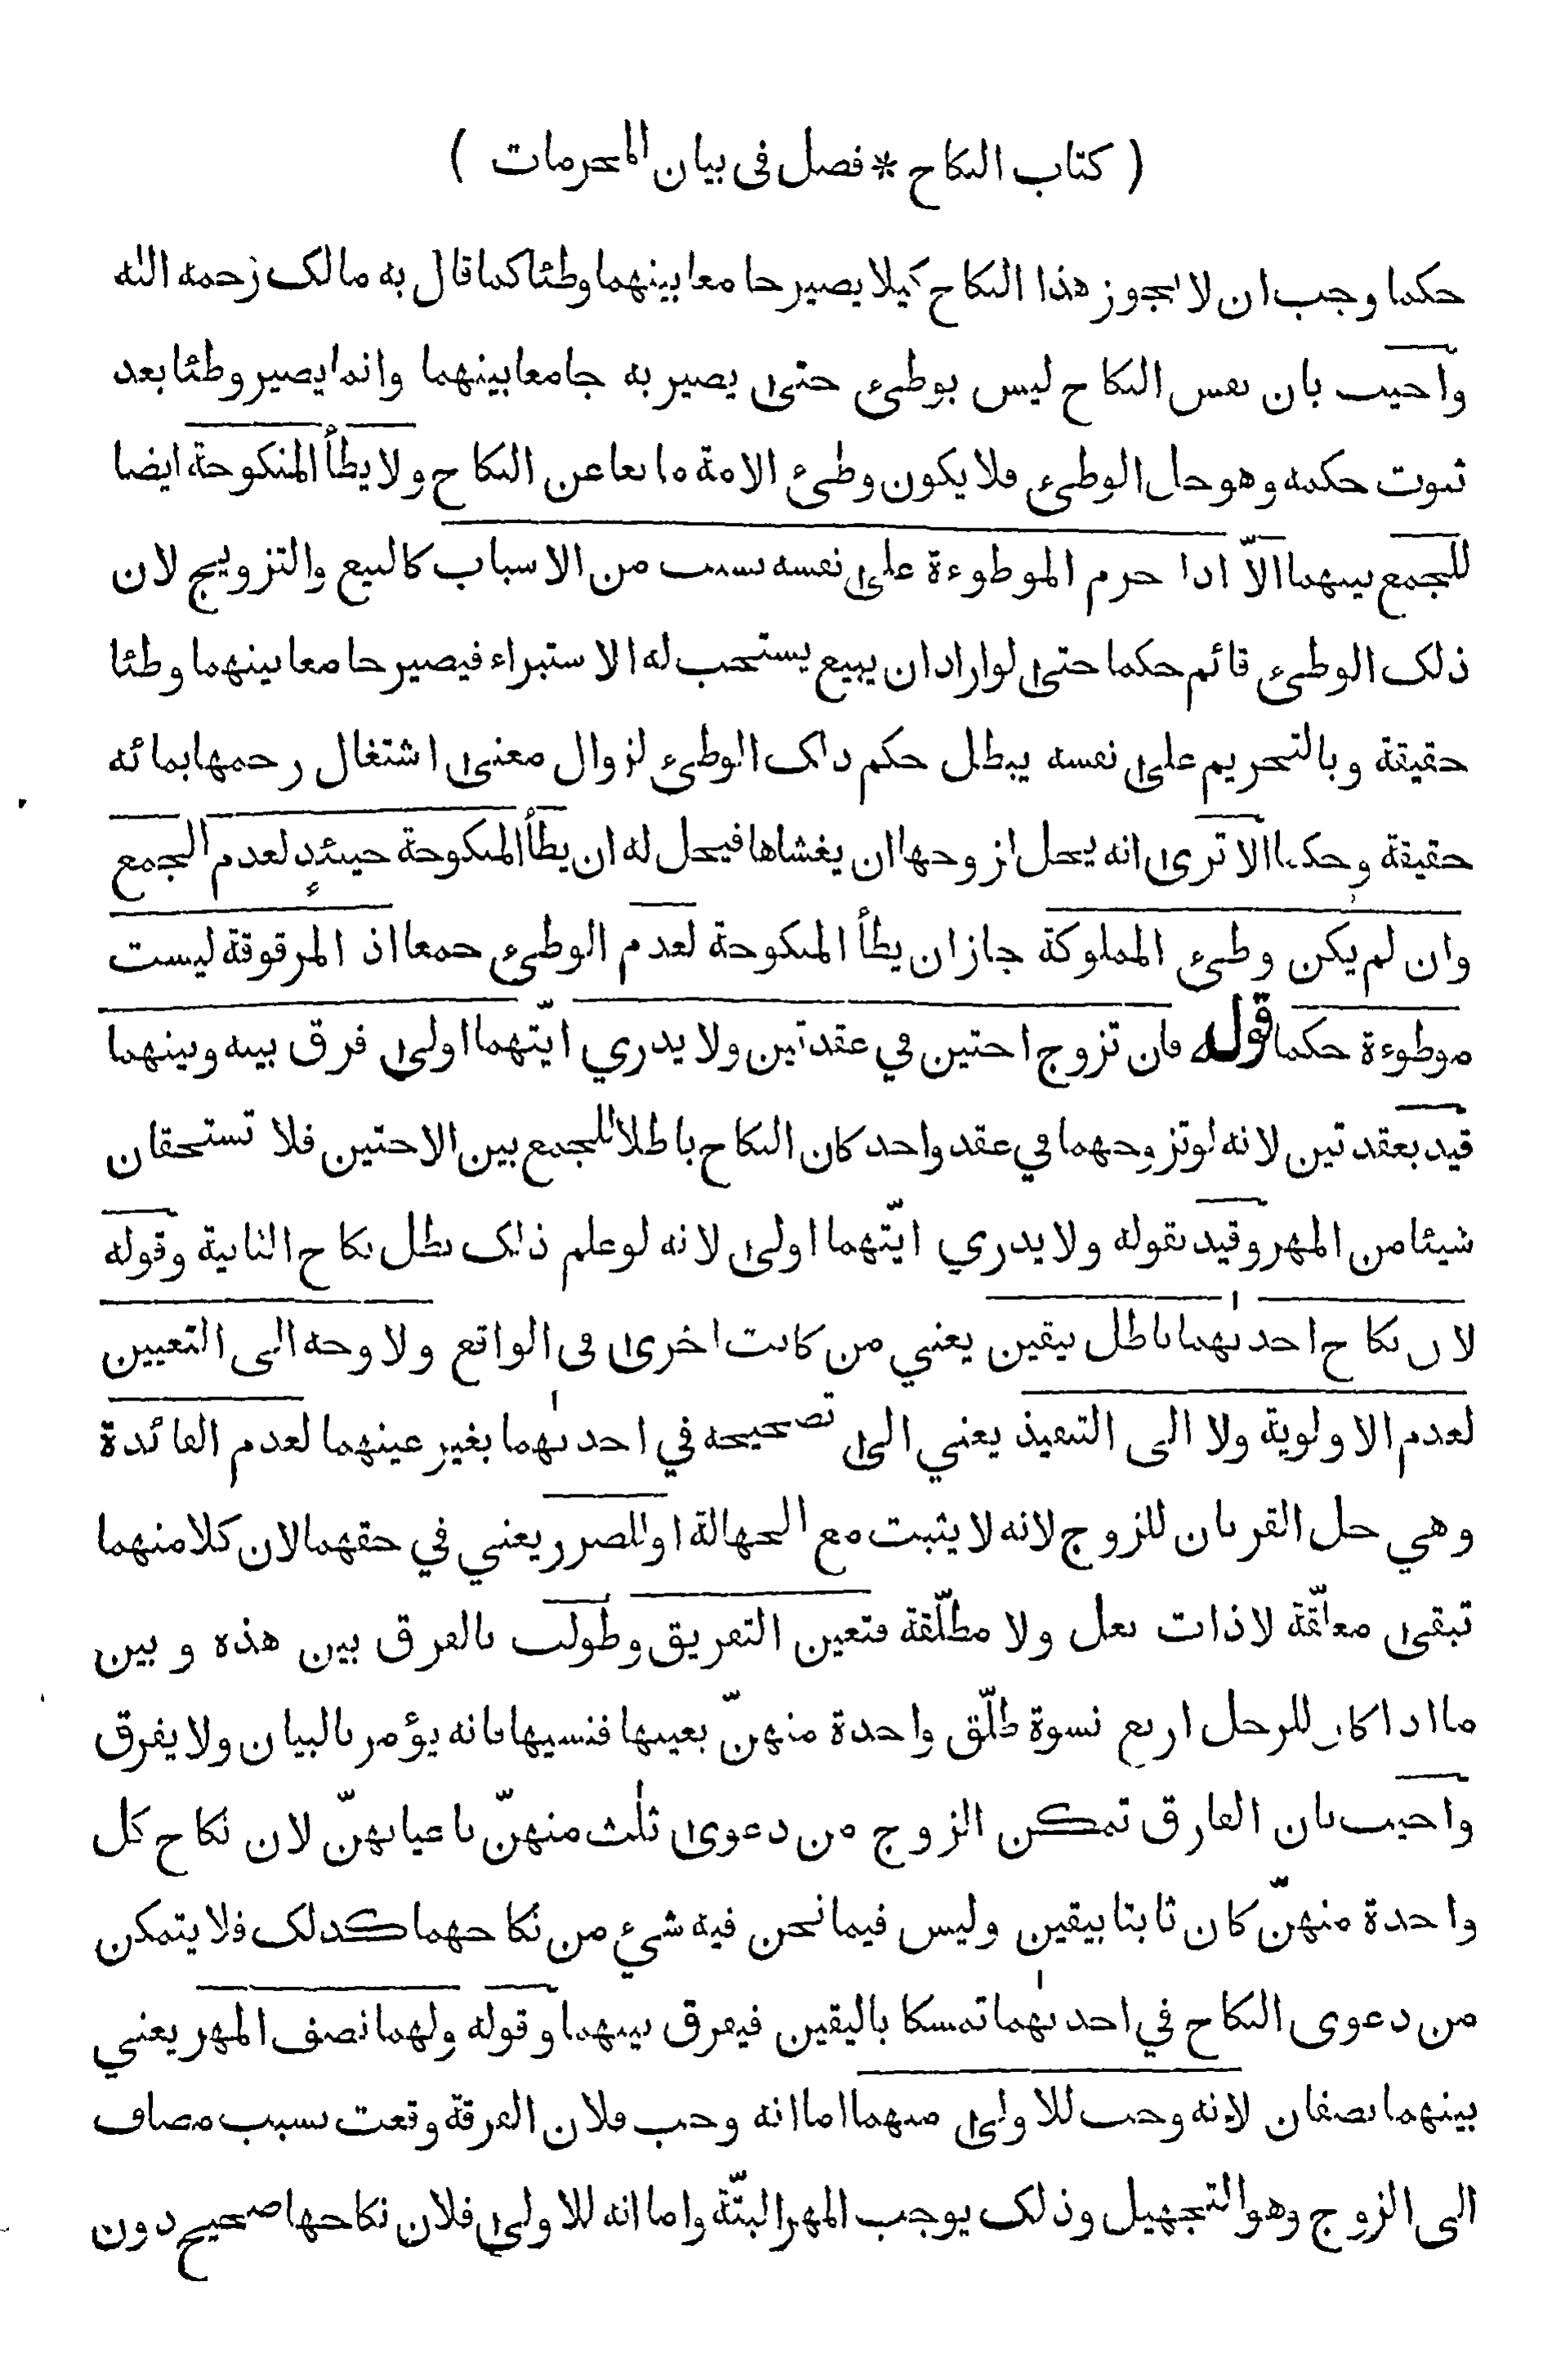 ( كتاب النكاح * فصل فى بيان المحرمات )
حكما وجب ان لا يجوز هذا النكاح كيلا يصير جامعا بينهما وطئا كما قال به مالك رحمه الله
واجيب بان نفس النكاح ليس بوطئ حتى يصير به جامعا بينهما وانما يصير وطئا بعد
ثبوت حكمه وهو حل الوطئ فلا يكون وطئ الامة مانعا عن النكاح ولا يطأ المنكوحة ايضا
للجمع بينهما الّا اذا حرم الموطوءة على نفسه بسبب من الاسباب كالبيع والتزويج لان
ذلك الوطئ قائم حكما حتى لو اراد ان يبيع يستحب له الاستبراء فيصير جامعا بينهما وطئا
حقيقة وبالتحريم على نفسه يبطل حكم ذلك الوطئ لزوال معنى اشتغال رحمها بمائه
حقيقة وحكما الا ترى انه يحل لزوجها ان يغشاها فيحل له ان يطأ المنكوحة حينئذ لعدم الجمع
وان لم يكن وطئ المملوكة جاز ان يطأ المنكوحة لعدم الوطئ جمعا اذ المرقوقة ليست
موطوءة حكما قوله فان تزوج اختين في عقدتين ولا يدري ايّتهما اولى فرق بينه وبينهما
قيد بعقدتين لانه لو تزوجهما في عقد واحد كان النكاح باطلا للجمع بين الاختين فلا تستحقان
شيئا من المهر وقيد بقوله ولا يدري ايّتهما اولى لانه لو علم ذلك بطل نكاح الثانية وقوله
لان نكاح احدٰىهما باطل بيقين يعني من كانت اخرى فى الواقع ولا وجه الى التعيين
لعدم الاولوية ولا الى التنفيذ يعني الى تصحيحه في احدٰىهما بغير عينهما لعدم الفائدة
وهي حل القربان للزوج لانه لا يثبت مع الجهالة او للضرر يعني في حقهما لان كلا منهما
تبقى معلّقة لا ذات بعل ولا مطلّقة فتعين التفريق وطولب بالفرق بين هذه و بين
ما اذا كان للرجل اربع نسوة طلّق واحدة منهنّ بعينها فنسيها فانه يؤمر بالبيان ولا يفرق
واجيب بان الفارق تمكن الزوج من دعوى ثلٰث منهنّ باعيانهنّ لان نكاح كل
واحدة منهنّ كان ثابتا بيقين وليس فيما نحن فيه شيء من نكاحهما كذلك فلا يتمكن
من دعوى النكاح في احدٰىهما تمسكا باليقين فيفرق بينهما و قوله ولهما نصف المهر يعني
بينهما نصفان لانه وجب للاولى منهما اما انه وجب فلان الفرقة وقعت بسبب مضاف
الى الزوج وهو التجهيل وذلك يوجب المهر البتّة واما انه للاولى فلان نكاحها صحيح دون